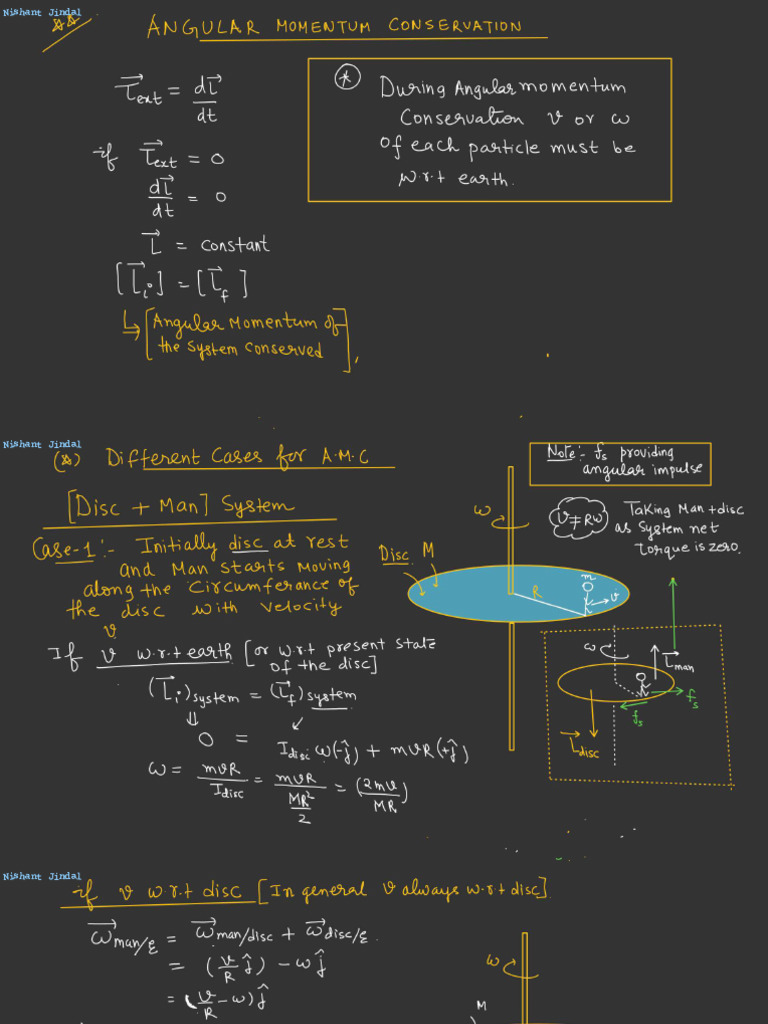 Nishant Jindal
ANGULAR MOMENTUM CONSERVATION
τ⃗ext = dL⃗/dt
if τ⃗ext = 0
dL⃗/dt = 0
L⃗ = constant
[L⃗i] = [L⃗f]
↳ [Angular Momentum of
the System Conserved],
* During Angular momentum
Conservation v or ω
of each particle must be
w.r.t earth.
Nishant Jindal
(*) Different Cases for A.M.C
[Disc + Man] System
Case-1:- Initially disc at rest
and Man starts moving
along the Circumferance of
the disc with velocity
v
If v w.r.t earth [or w.r.t present state
of the disc]
(L⃗i)system = (L⃗f)system
⇓ ↙
0 = Idisc ω(-ĵ) + mvR(+ĵ)
ω = mvR/Idisc = mvR/(MR²/2) = (2mv/MR)
Note:- fs providing
angular impulse
v ≠ Rω
Taking Man+disc
as System net
torque is zero.
ω
Disc M
R
m
v
ω
L⃗man
fs
fs
L⃗disc
Nishant Jindal
if v w.r.t disc [In general v always w.r.t disc]
ω⃗man/E = ω⃗man/disc + ω⃗disc/E.
= (v/R ĵ) - ωĵ
= (v/R - ω)ĵ
ω
M